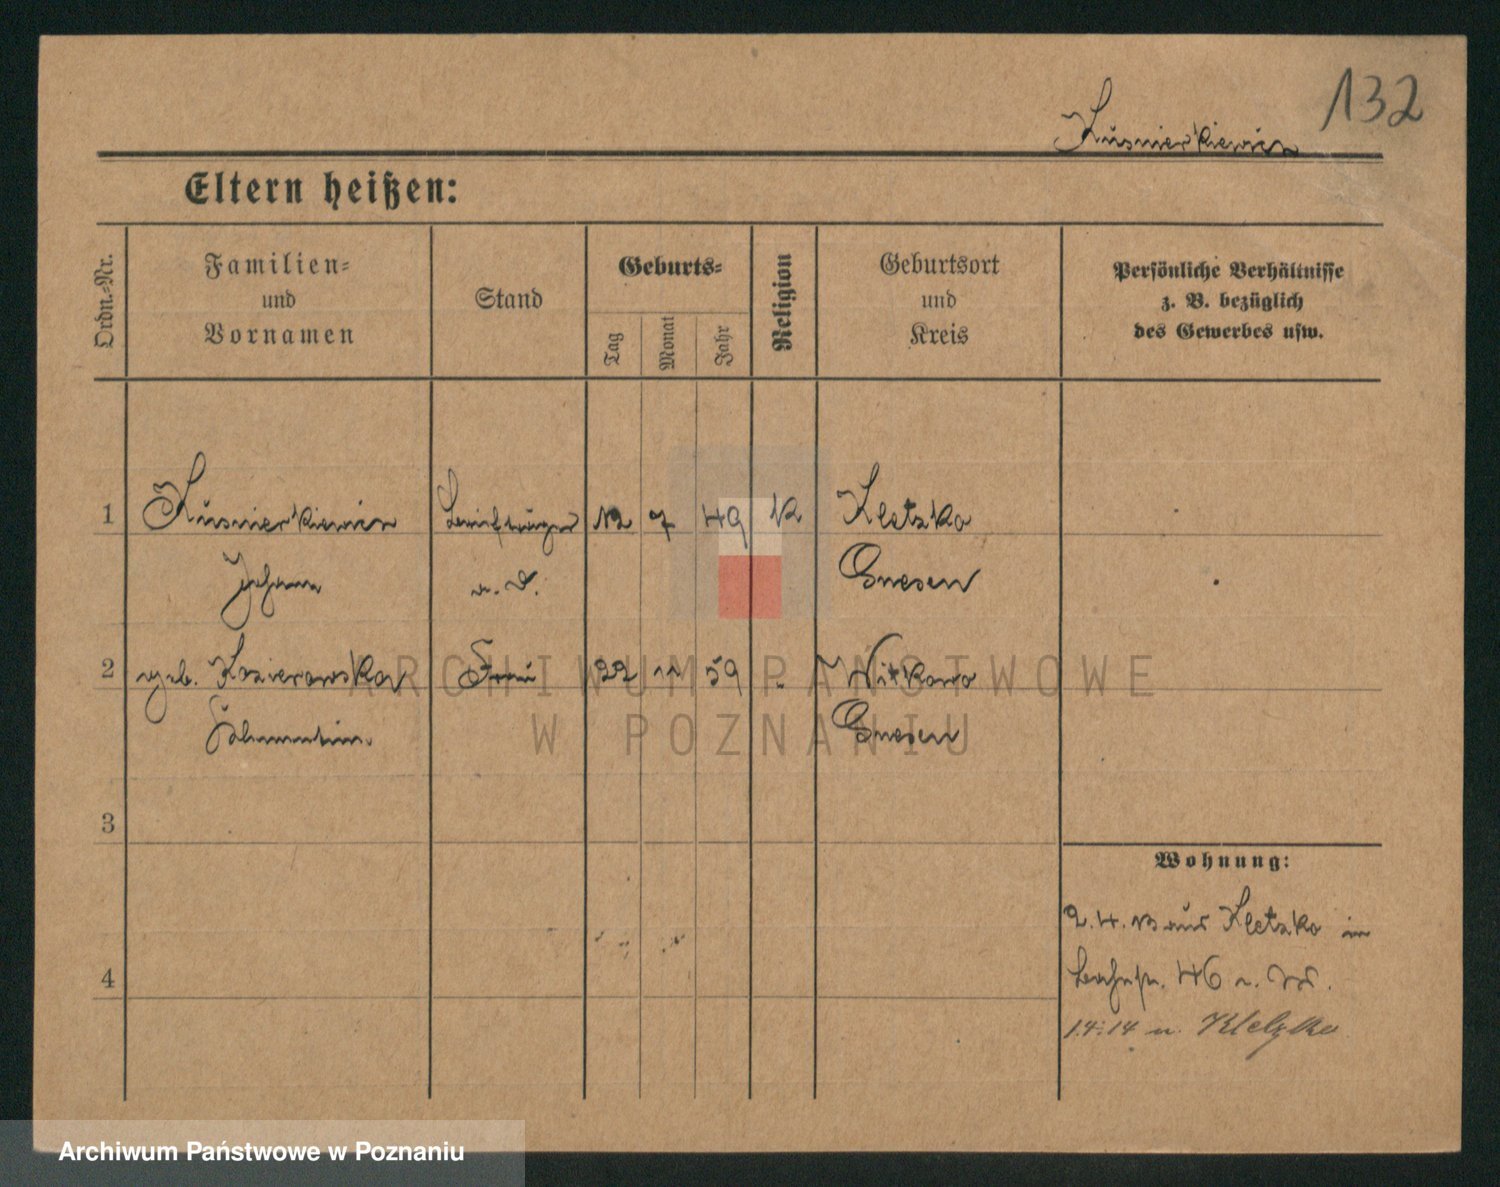 132
Kusnierkiewicz
Eltern heißen:
Ordn.-Nr.
Familien-
und
Vornamen
Stand
Geburts-
Tag
Monat
Jahr
Religion
Geburtsort
und
Kreis
Persönliche Verhältnisse
z. B. bezüglich
des Gewerbes usw.
1 Kusnierkiewicz 12 7 49 K Kletzko
Johann Gnesen
2 geb. Kozierowska Frau 22 11 59 " Witkowo
Gnesen
ARCHIWUM PAŃSTWOWE
W POZNANIU
3
4
Wohnung:
2.4.13 aus Kletzko in
46
1.4.14 n. Kletzko
Archiwum Państwowe w Poznaniu